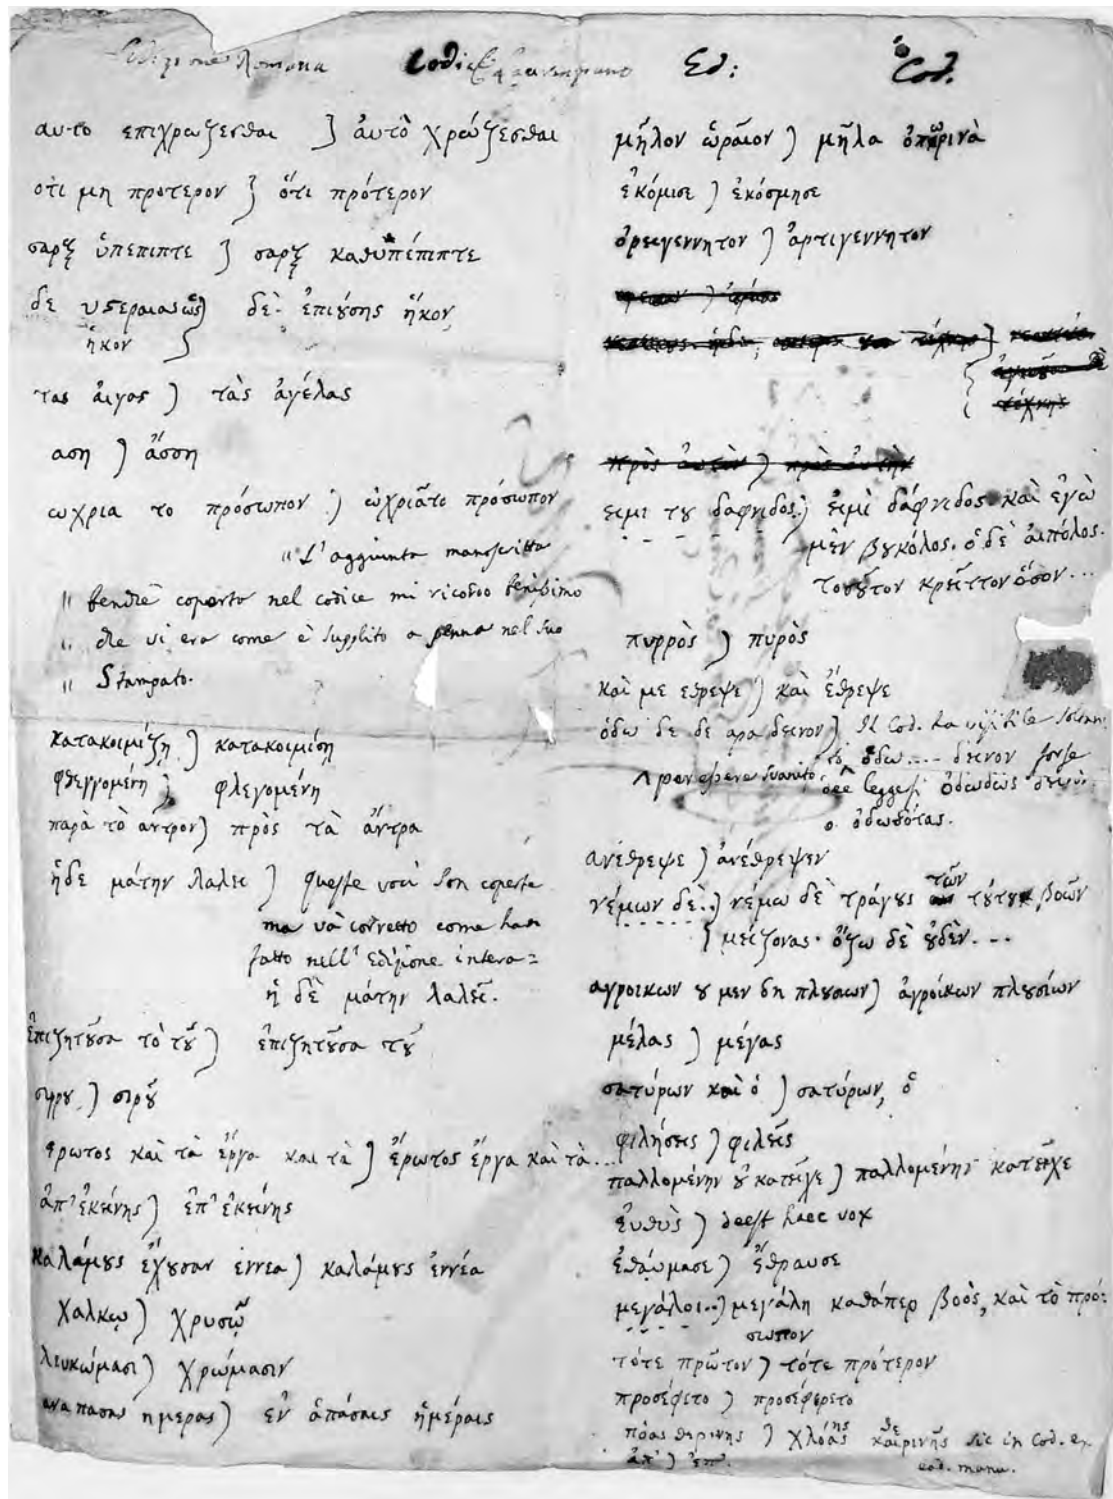 Edizione Romana Codice Ed: Cod.
αυτο επιχρωζεσθαι } ἀυτὸ χρώζεσθαι
οτι μη προτερον } ὅτι πρότερον
σαρξ ὑπεπιπτε } σαρξ καθυπέπιπτε
δε υςεραιας ὡς } δὲ ἐπιούσης ἧκον
ἧκον
τας αιγας ) τὰς ἀγέλας
αση ) ἄσση
ωχρια το πρόσωπον ) ὠχριᾶτο πρόσωπον
" L' aggiunta manoscritta
" benchè coperto nel codice mi ricordo benissimo
" che vi era come è supplito a penna nel suo
" Stampato.
κατακοιμίζῃ ) κατακοιμίσῃ
φθεγγομένη ) φλεγομένη
παρὰ τὸ αντρον ) πρὸς τὰ ἄντρα
ἡδε μάτην λαλει ) Queste voci son coperte
ma và corretto come han
fatto nell' edizione intera =
ἡ δὲ μάτην λαλεῖ.
ἐπιζητοῦσα τὸ τοῦ ) ἐπιζητοῦσα τοῦ
σιρρου ) σιροῦ
ερωτος και τὰ ἔργα και τὰ ) ἔρωτος ἔργα καὶ τὰ...
ἀπ' ἐκείνης ) ἐπ' ἐκείνης
καλάμους ἔχουσαν εννεα ) καλάμους ἐννέα
χαλκῳ ) χρυσῷ
λευκώμασι ) χρώμασιν
ανα πασας ημερας ) εν ἁπάσαις ἡμέραις
μῆλον ὡραῖον ) μῆλα ὀπωρινὰ
ἐκόμισε ) ἐκόσμησε
ὀρειγεννητον ) ἀρτιγεννητον
πρὸς αυτὸν ) πρὸς ἀυτὴν
ειμι του δαφνιδος ) ἐιμὶ δάφνιδος καὶ ἐγὼ
μὲν βουκόλος. ὁ δὲ ἀιπόλος.
τοσοῦτον κρεῖττον ὅσον...
πυρρὸς ) πυρὸς
καὶ με εθρεψε ) καὶ ἔθρεψε
ὀδω δε δε αρα δεινον ) Il Cod. ha visibile
ὀδω .... δεινον forse
leggesi
ο ὀδωδότας.
ανέθρεψε ) ἀνέθρεψεν
νέμων δὲ.. ) νέμω δὲ τράγους τῶν τούτου βοῶν
μείζονας. ὄζω δὲ οὐδὲν...
αγροικων ου μεν δη πλουσιων ) ἀγροίκων πλουσίων
μέλας ) μέγας
σατύρων καὶ ὁ ) σατύρων, ὁ
φιλήσεις ) φιλεῖς
παλλομένην οὐ κατεῖχε ) παλλομένην κατεῖχε
ἐυθὺς ) deest haec vox
ἐθαύμασε ) ἔθραυσε
μεγάλοι.. ) μεγάλη καθάπερ βοὸς, καὶ τὸ πρό-
σωπον
τότε πρῶτον ) τότε πρότερον
προσέφετο ) προσέφερετο
πόας θερινης ) χλόας ης καιρινῆς θε sic in Cod. ex
ἀπ' ) ἐπ'. eod. manu.